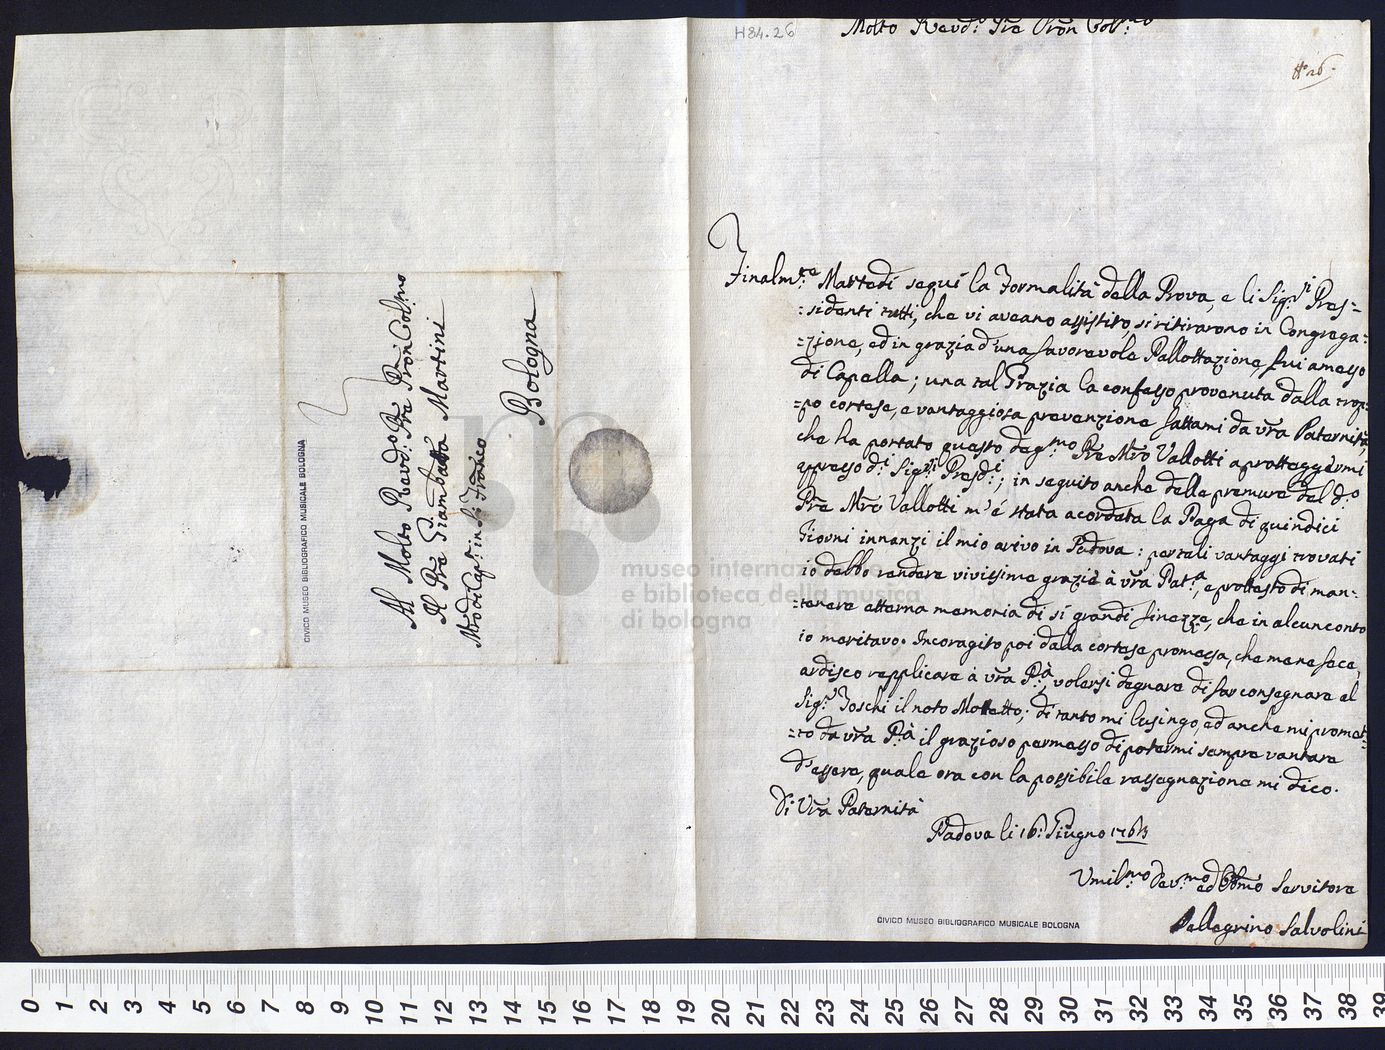 Al Molto Revd:o Pre Pron Col:mo
Il Pre Giambatta Martini
Mro di Cap: in S: Franco
Bologna
CIVICO MUSEO BIBLIOGRAFICO MUSICALE BOLOGNA
H84.26
Molto Revd:o Pre Pron Col:mo
No 26.
Finalm:te Martedì seguì la Formalità della Prova, e li Sig:ri Pres=
=sidenti tutti, che vi aveano assistito, si ritirarono in Congrega=
=zione, ed in grazia d'una favorevole Pallottazione, fui amesso
di Capella; una tal Grazia la confesso provenuta dalla trop=
=po cortese, e vantaggiosa prevenzione fattami da vra Paternità,
che ha portato questo deg:mo Pre Mro Vallotti a prottaggermi
appresso d:i Sig:ri Presd:i; in seguito anche delle premure del d:o
Pre Mro Vallotti m'é stata acordata la Paga di quindici
Giorni innanzi il mio arivo in Padova: per tali vantaggi trovati
io debbo rendere vivissime grazie à vra Pat:à, e prottesto di man=
=tenere etterna memoria di sì grandi finezze, che in alcun conto
io meritavo. Incoragito poi dalla cortese promessa, che me ne fece,
ardisco repplicare à vra P:à, volersi degnare di far consegnare al
Sig:r Foschi il noto Mottetto; di tanto mi lusingo, ed anche mi promet=
=to da vra P:à il grazioso permesso di potermi sempre vantare
d'essere, quale ora con la possibile rassegnazione mi dico.
Di Vra Paternità
Padova li 16: Giugno 1763
Umil:mo Dev:mo ed Obbmo Servitore
Pellegrino Salvolini
CIVICO MUSEO BIBLIOGRAFICO MUSICALE BOLOGNA
museo internazionale
e biblioteca della musica
di bologna
0 1 2 3 4 5 6 7 8 9 10 11 12 13 14 15 16 17 18 19 20 21 22 23 24 25 26 27 28 29 30 31 32 33 34 35 36 37 38 39